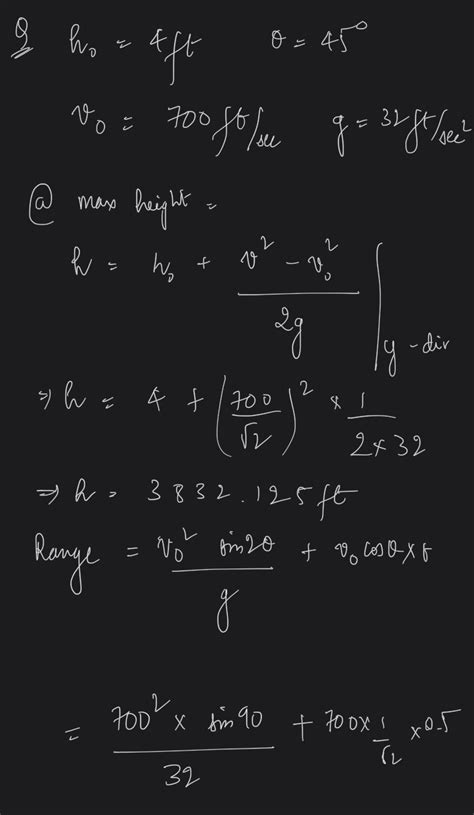 Q h₀ = 4ft θ = 45°
v₀ = 700 ft/sec g = 32 ft/sec²
@ max height =
h = h₀ + (v² - v₀²)/2g | y-dir
⇒ h = 4 + (700/√2)² × 1/(2×32)
⇒ h = 3832.125 ft
Range = v₀² sin2θ/g + v₀ cosθ × t
= 700² × sin 90/32 + 700 × 1/√2 × 0.5